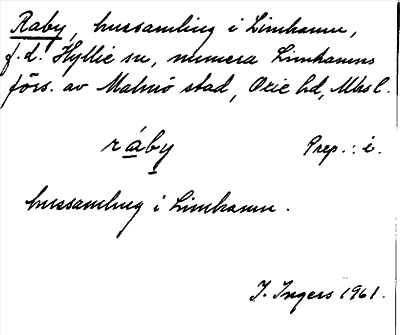 Raby, hussamling i Limhamn,
f.d. Hyllie sn, numera Limhamns
förs. av Malmö stad, Oxie hd, Mhs l.
ráby Prep.: i.
hussamling i Limhamn.
I. Ingers 1961.